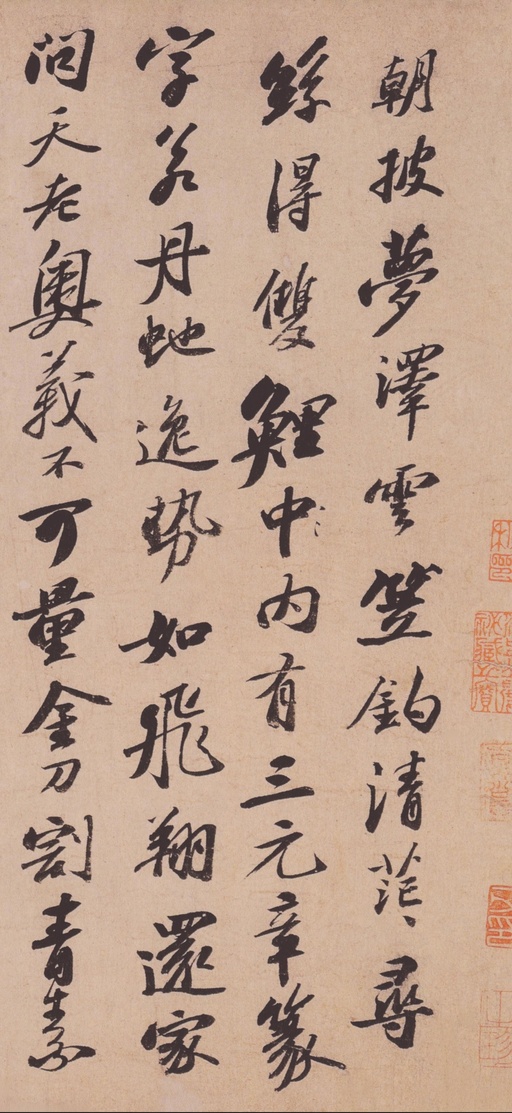 朝披夢澤雲笠釣清茫〻尋
絲得雙鯉中〻內有三元章篆
字若丹虵逸勢如飛翔還家
問天老奧義不可量金刀割青素